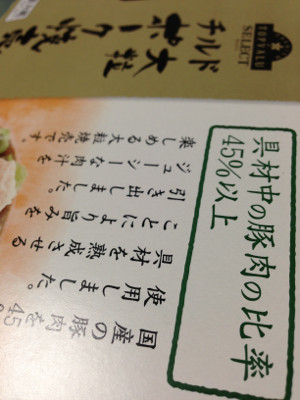 TOPVALU
SELECT
チルド大粒
ポーク焼売
具材中の豚肉の比率
45%以上
国産の豚肉を45
使用しました。
具材を熟成させる
ことにより旨みを
引き出しました。
ジューシーな肉汁を
楽しめる大粒焼売です。